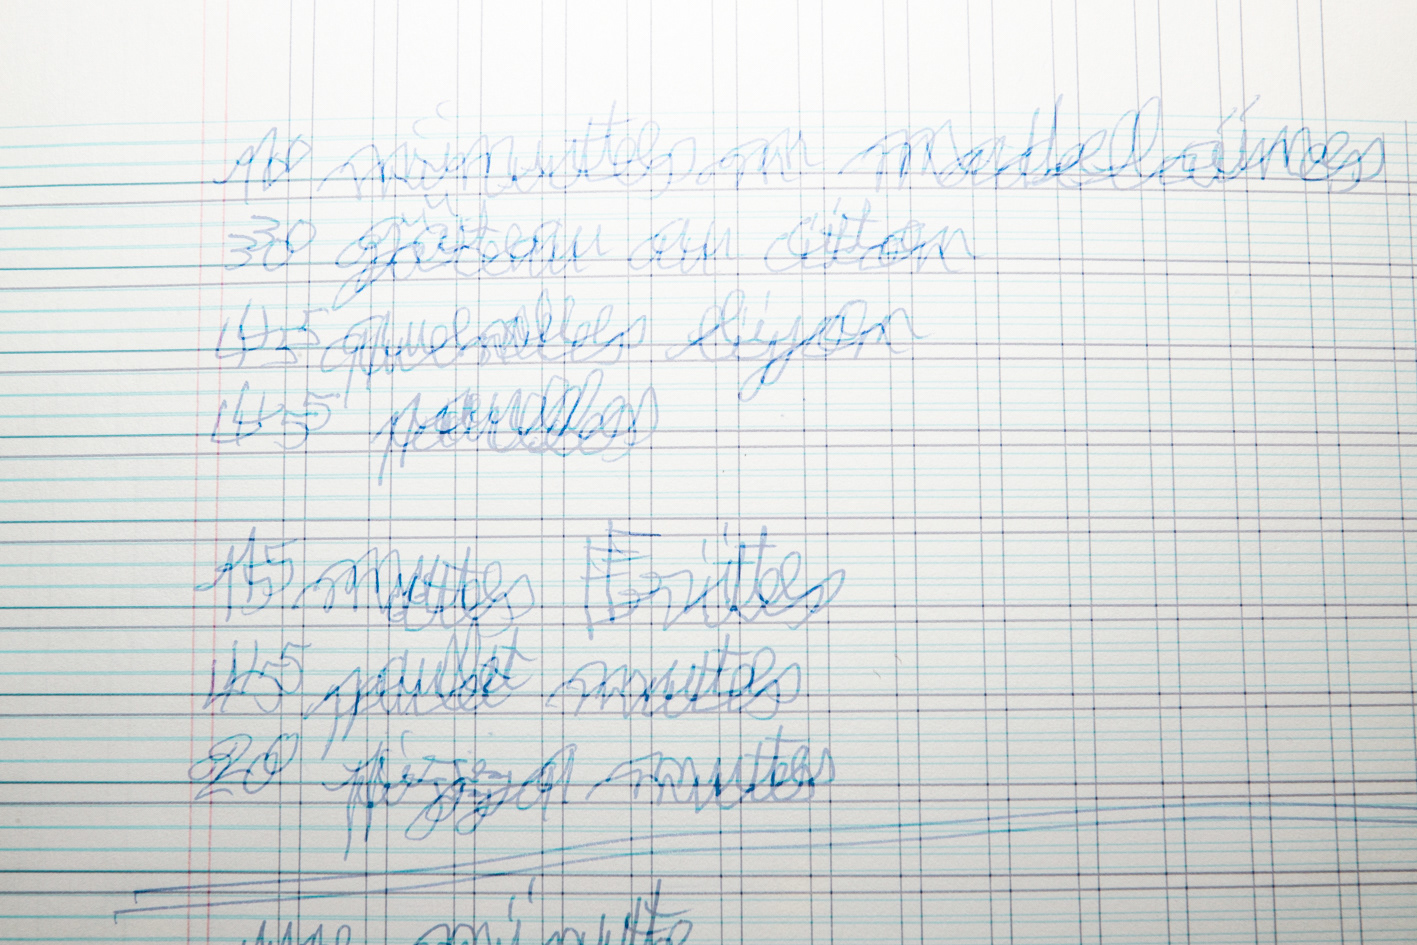 10 minuttes madelaines
30 gâteau au citon
45 quenelles liyon
45 
15 mutes Frittes
45 poullet mutes
20 pizza mutes
une minutte